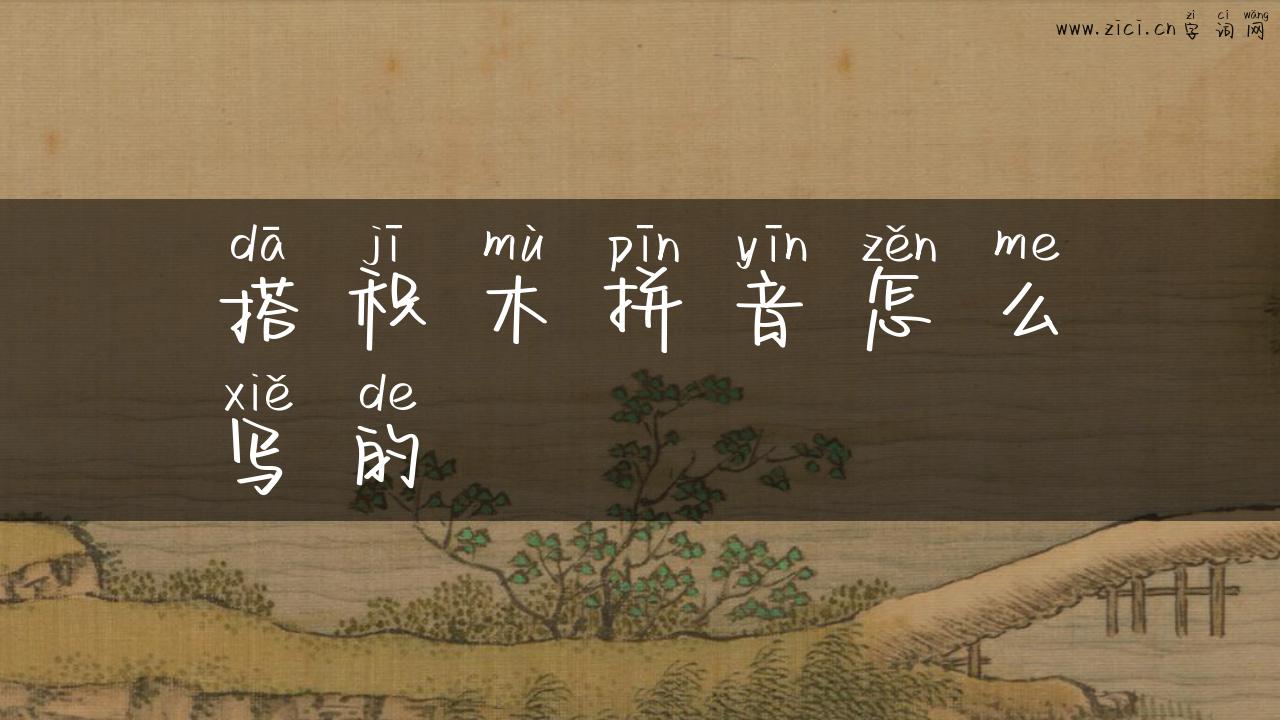 zì cí wǎng
www.zici.cn 字 词 网
dā jī mù pīn yīn zěn me
搭 积 木 拼 音 怎 么
xiě de
写 的